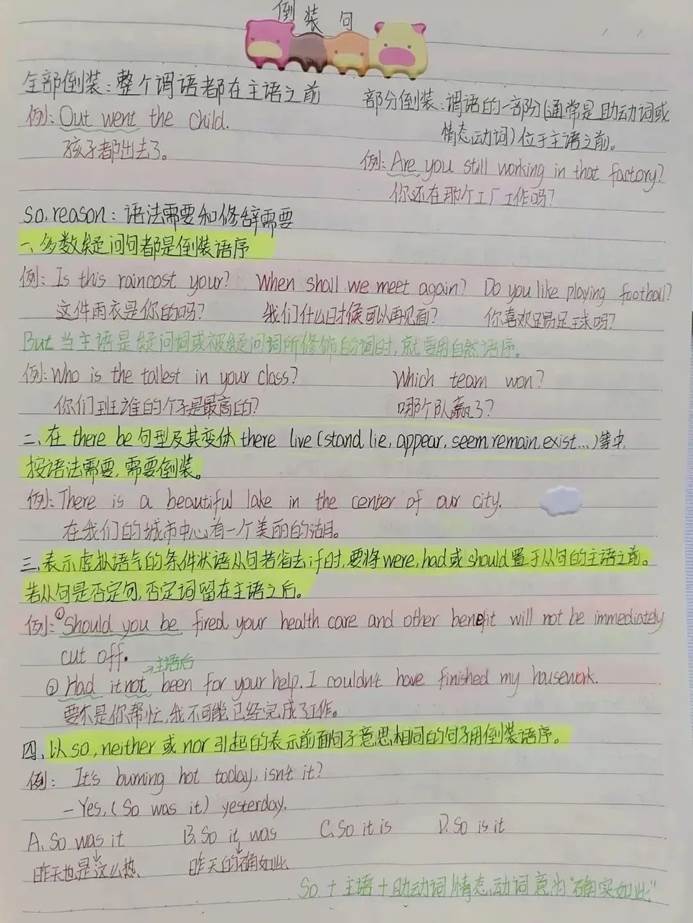 倒装句
全部倒装：整个谓语都在主语之前
例：Out went the child.
孩子都出去了。
部分倒装：谓语的一部分(通常是助动词或
情态动词)位于主语之前。
例：Are you still working in that factory?
你还在那个工厂工作吗?
so, reason：语法需要和修辞需要
一、多数疑问句都是倒装语序
例：Is this raincost your? When shall we meet again? Do you like playing football?
这件雨衣是你的吗? 我们什么时候可以再见面? 你喜欢踢足球吗?
But 当主语是疑问词或被疑问词所修饰的词时，就要用自然语序。
例：Who is the tallest in your class? Which team won?
你们班谁的个子是最高的? 哪个队赢了?
二、在 there be 句型及其变体 there live (stand, lie, appear, seem, remain, exist...)等中,
按语法需要，需要倒装。
例：There is a beautiful lake in the center of our city.
在我们的城市中心有一个美丽的湖。
三、表示虚拟语气的条件状语从句若省去if时，要将were, had或should置于从句的主语之前。
若从句是否定句，否定词留在主语之后。
例：①Should you be fired your health care and other benefit will not be immediately
cut off.
→主语后
② Had it not been for your help. I couldn't have finished my housework.
要不是你帮忙，我不可能已经完成了工作。
四、以 so, neither 或 nor 引起的表示前面句子意思相同的句子用倒装语序。
例：It's burning hot today, isn't it?
- Yes, (So was it) yesterday.
A. So was it B. So it was C. So it is D. So is it
昨天也是这么热、 昨天的确如此
So + 主语 + 助动词/情态动词 意为"确实如此"